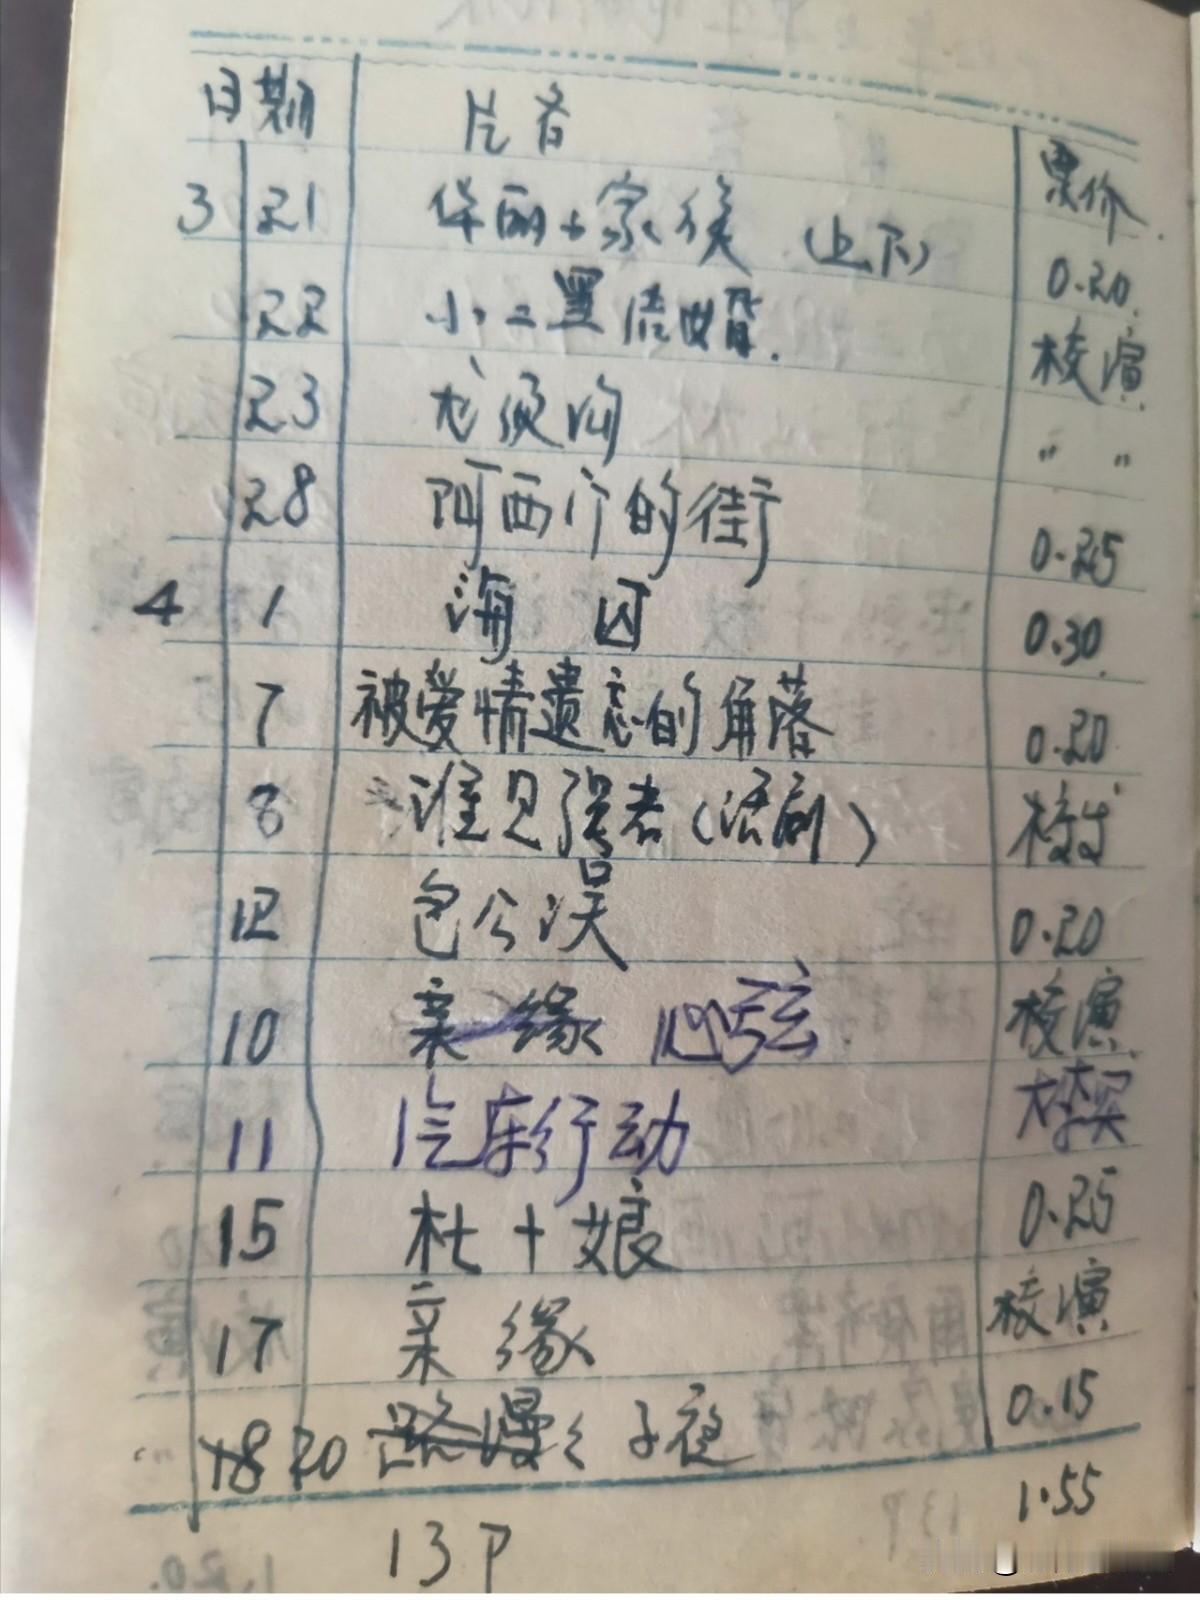 日期 片名 票价
3 21 华丽的家族 (上下) 0.20
22 小二黑结婚. 校演
23 龙须沟 〃 〃
28 阿西门的街 0.25
4 1 海囚 0.30
7 被爱情遗忘的角落 0.20
8 谁是强者(话剧)
12 包公误 0.20
10 亲缘 心弦 校演
11 汽车行动
15 杜十娘 0.25
17 亲缘 校演
18 20 路漫 子夜 0.15
13P 1.55